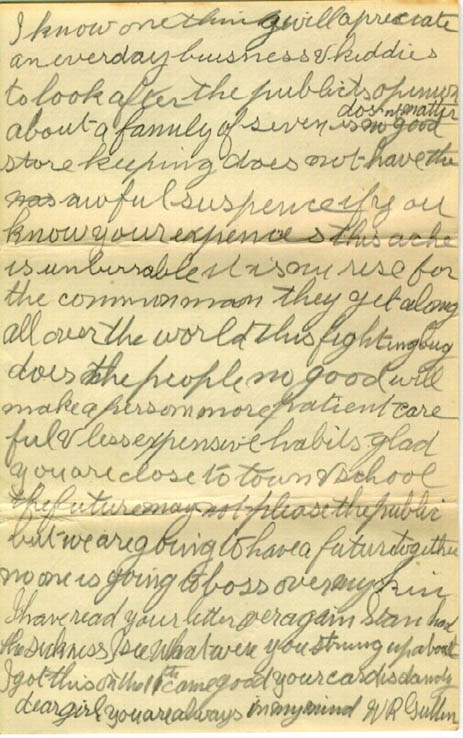 I know one thing will apreciate
an everday buisness & kiddies
to look after the publicts opinion
dos nt matter
about a family of seven is no good
store keeping does not have the
awful suspence if you
know your expences this ache
is unberrable it is my rise for
the common man they get along
all over the world this fighting bug
does the people no good will
make a person more patient care
ful & less expensive habits glad
you are close to town & school
the future may not please the public
but we are going to have a future together
no one is going to boss over my kin
I have read your letter over again Stan had
the sickness I see What were you strung up about
I got this on the 11th came good your card is dandy
dear girl you are always in my mind W R